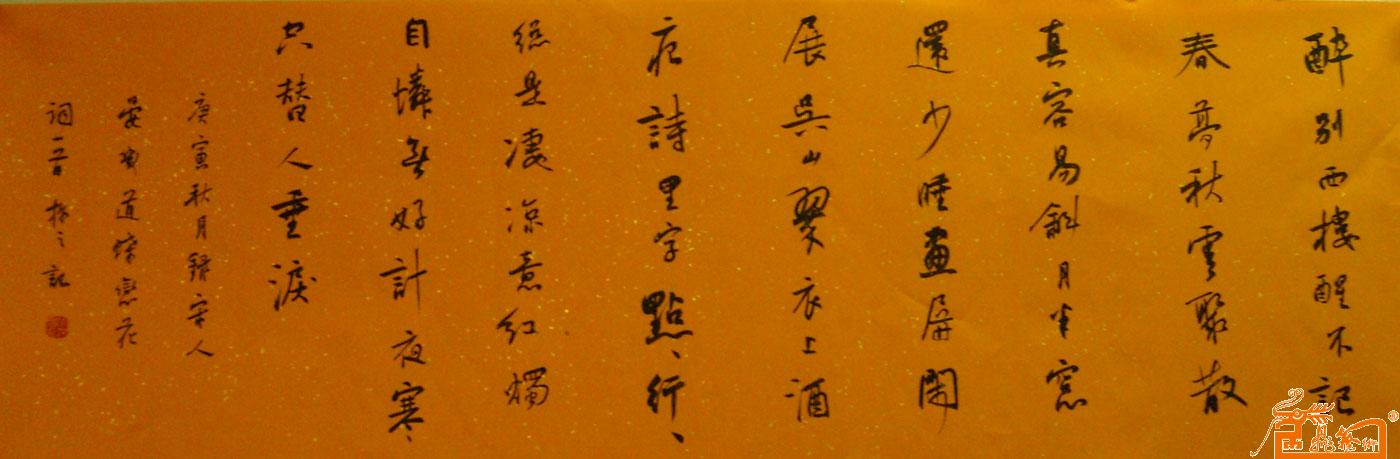 醉別西樓醒不記
春夢秋雲聚散
真容易斜月半窓
還少睡畫屏閑
展吳山翠衣上酒
痕詩里字點、行、
總是淒涼意紅燭
自憐無好計夜寒
空替人垂淚
庚寅秋月錄宋人
晏幾道蝶戀花
詞一首 之記